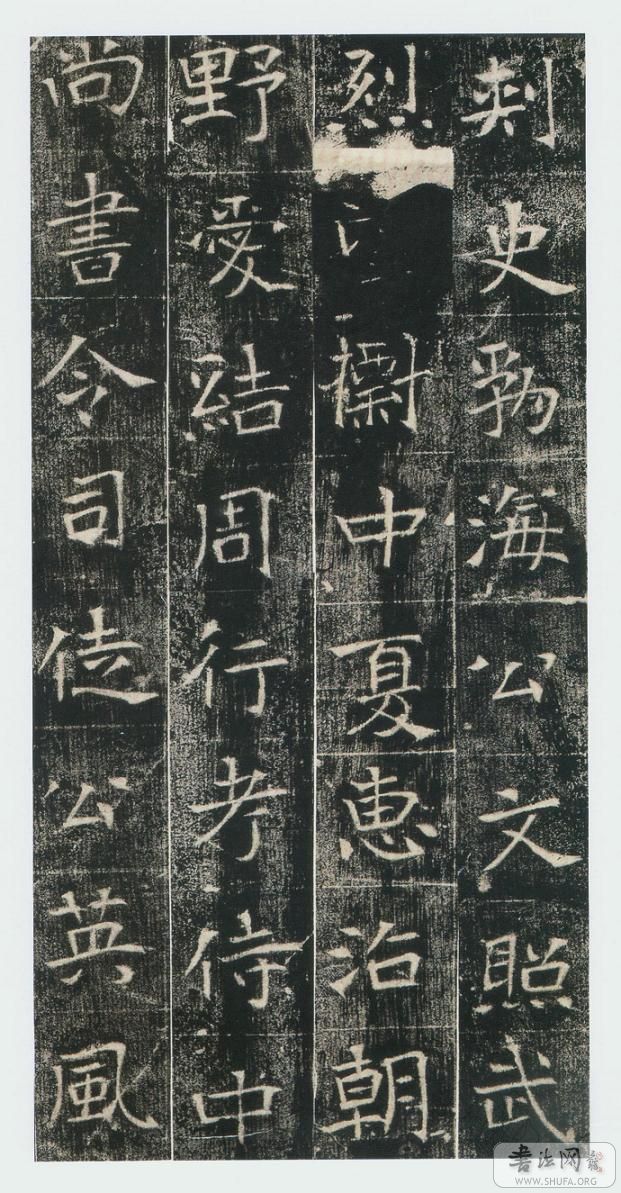 刺史勃海公文照武
烈中夏惠洽朝
野愛結周行考侍中
尚書令司徒公英風
書法网
WWW.SHUFA.ORG